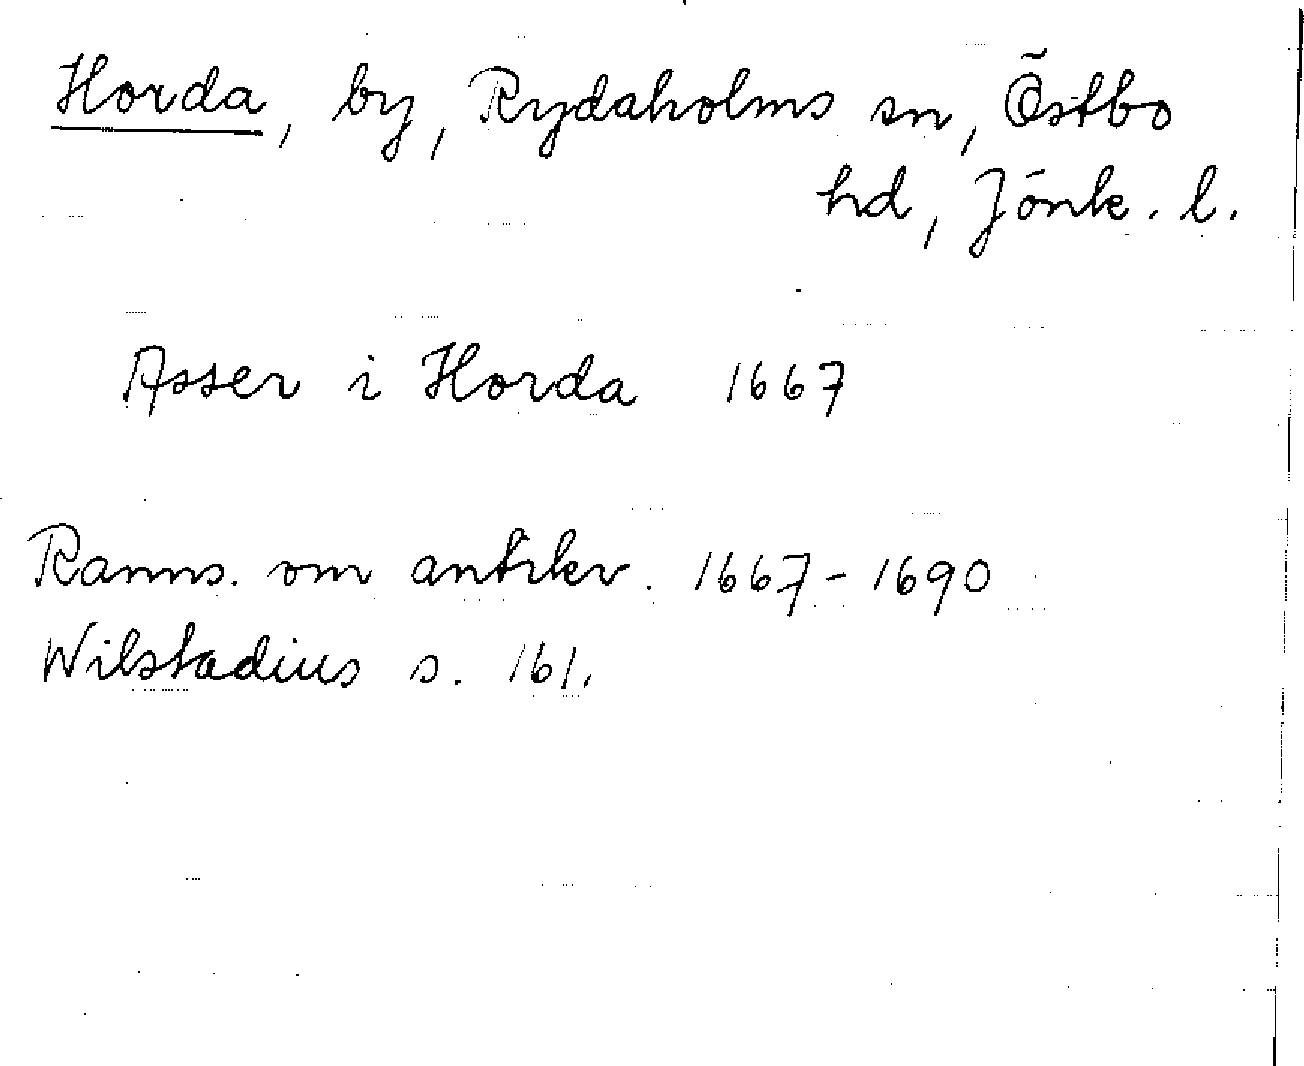 Horda, by, Rydaholms sn, Östbo
hd, Jönk. l.
Asser i Horda 1667
Ranns. om antikv. 1667-1690
Wilstadius s. 161.